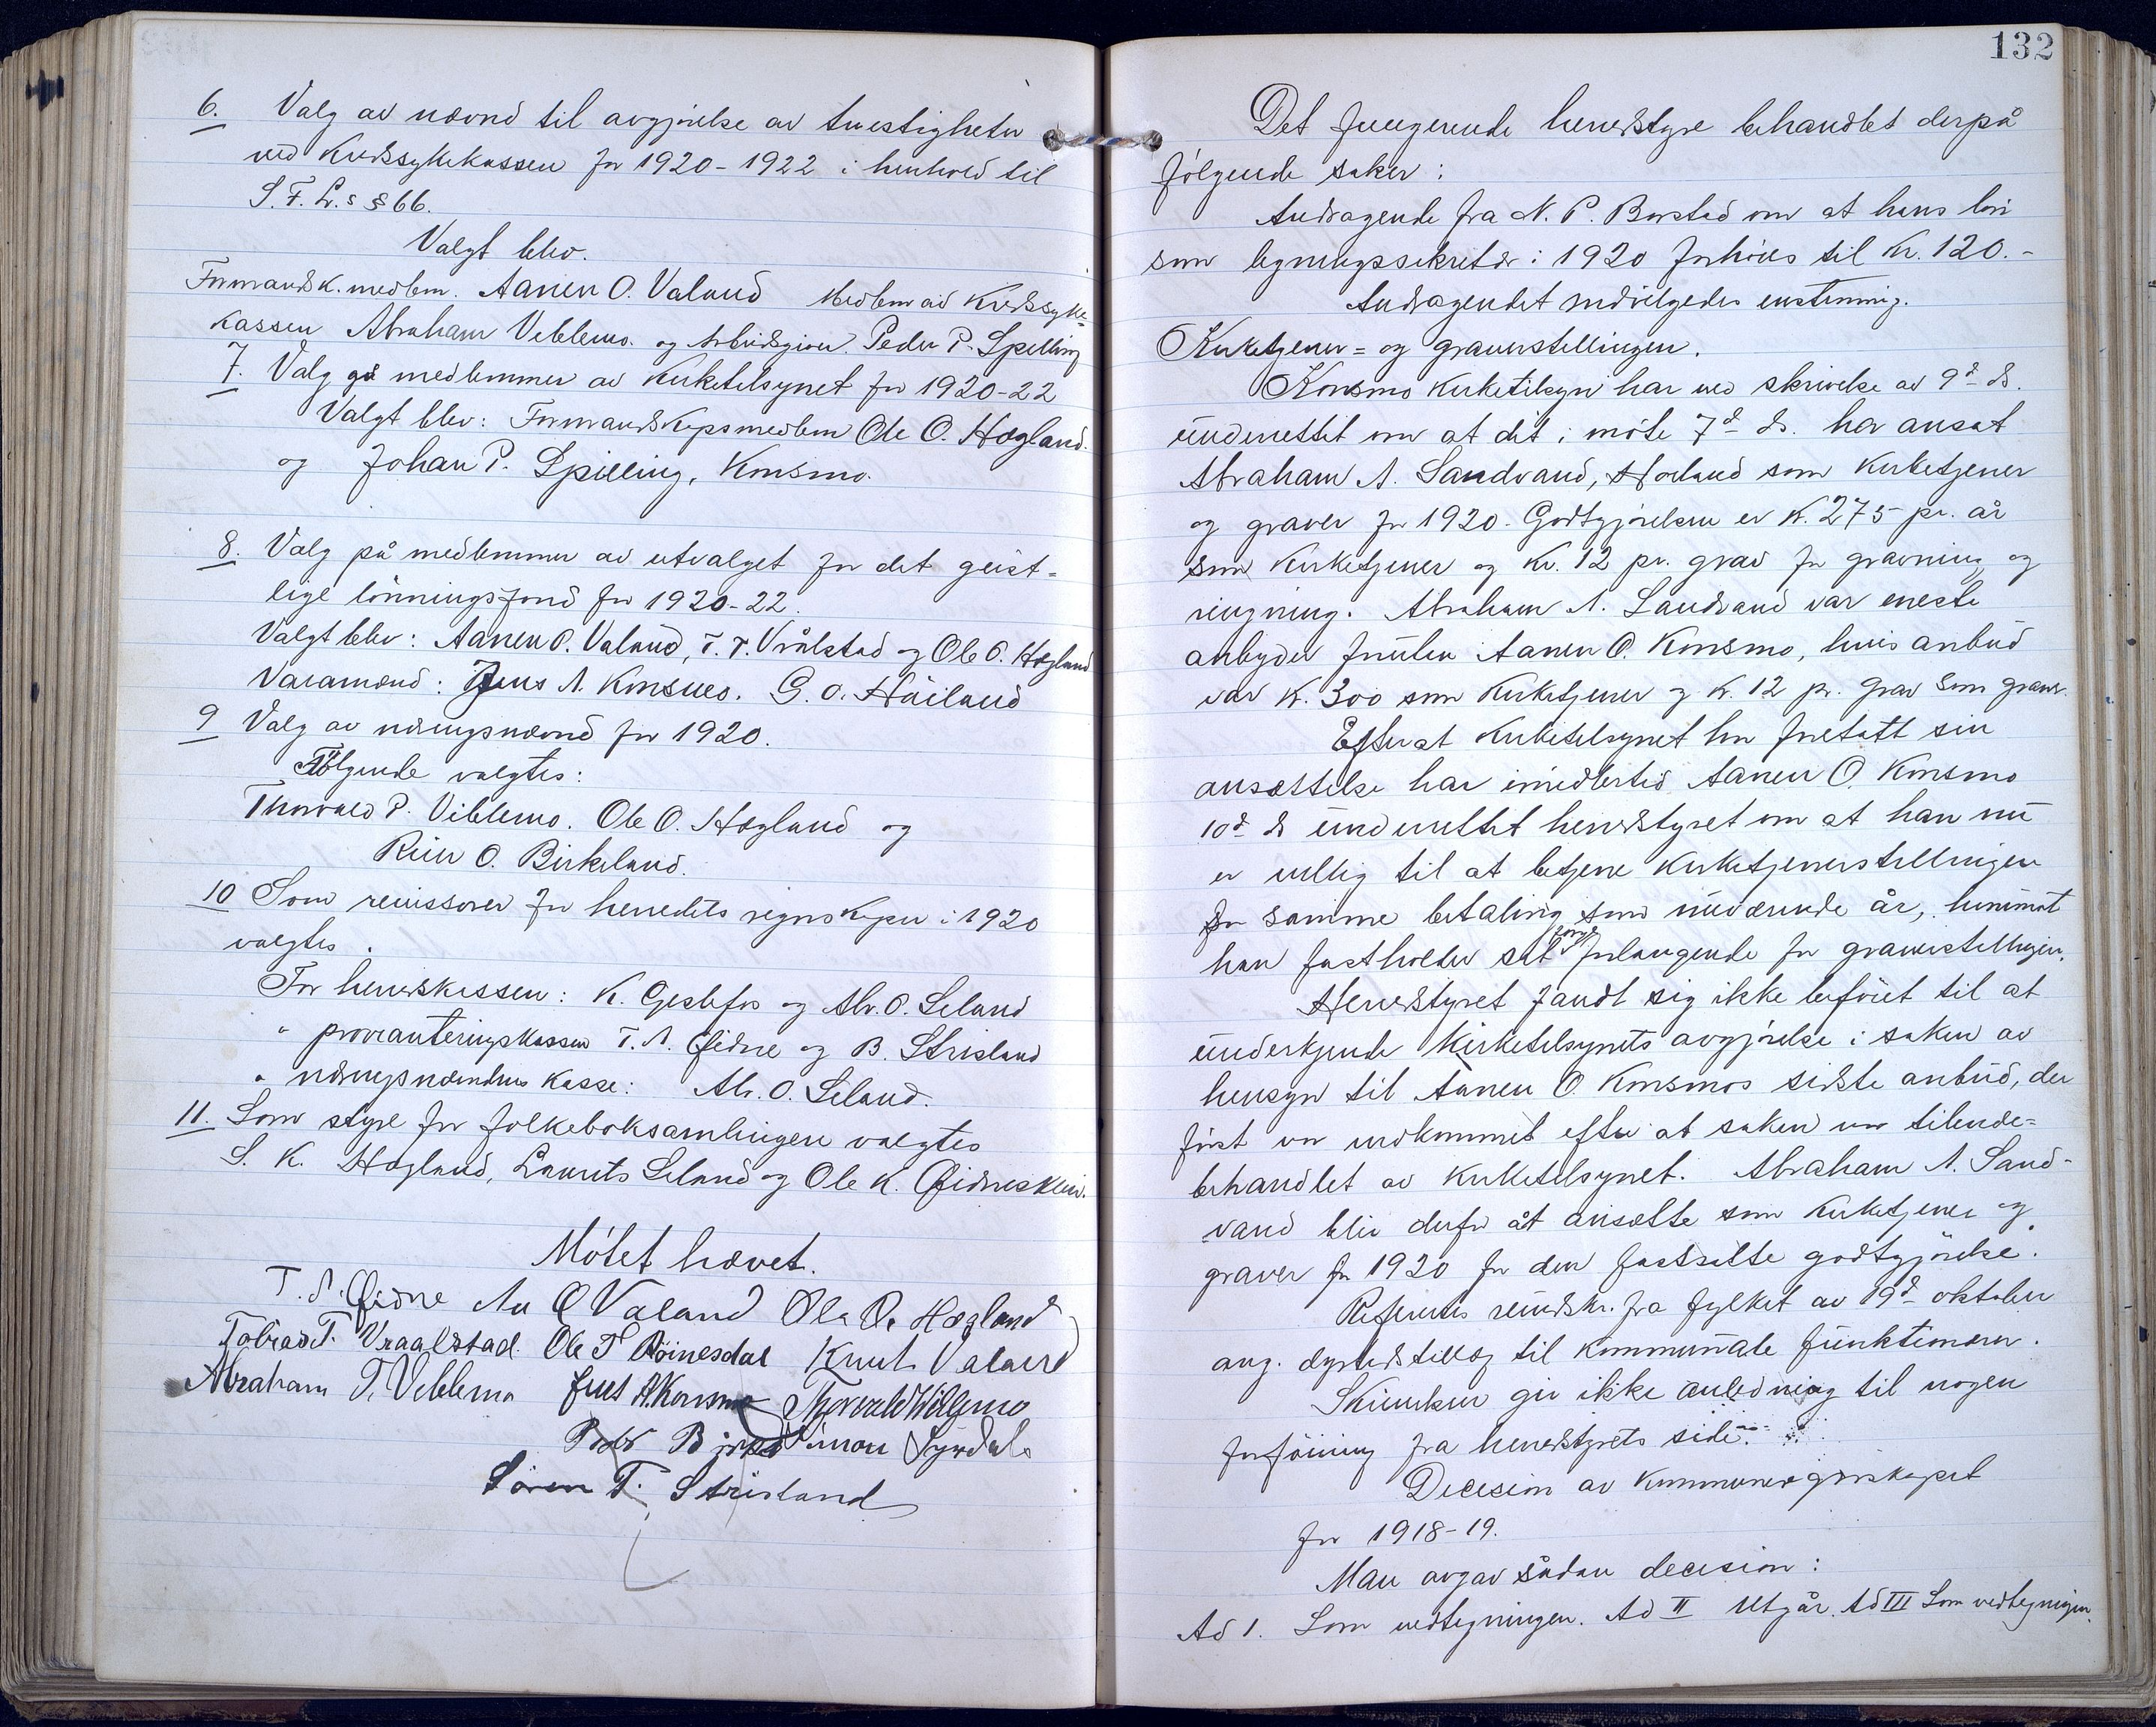 6. Valg av nævnd til avgjörelse av tvistigheter
ved Kredssykekassen for 1920-1922 i henhold til
S. F. L.s § 66.
Valgt blev.
Formandsk. medlem. Aanen O. Valand Medlem av Kredssyke=
kassen Abraham Veblemo. og Arbeidsgiver. Peder P. Spilling
7. Valg på medlemmer av Kirketilsynet for 1920-22
Valgt blev: Formandskapsmedlem Ole O. Hægland.
og Johan P. Spilling, Konsmo.
8. Valg på medlemmer av utvalget for det geist=
lige lönningsfond for 1920-22.
Valgt blev: Aanen O. Valand, T. T. Vrålstad og Ole O. Hægland
Varamænd: Jens A. Konsmo. G. O. Håiland
9 Valg av næringsnævnd for 1920.
Fölgende valgtes:
Thorvald P. Viblemo. Ole O. Hægland og
Reier O. Birkeland.
10 Som revissorer for herredets regnskaper i 1920
valgtes.
For herredskassen: K. Gjeslefos og Alv. O. Seland
" provianteringskassen T. A. Øidne og B. Strisland
" næringsnævndens kasse: Alv. O. Seland.
11. Som styre for folkeboksamlingen valgtes
S. K. Hægland, Laurits Seland og Ole K. Øidneskleiv.
Mötet hævet.
T. A. Øidne Aa O Valand Ole O. Hægland
Tobias T. Vraalstad. Ole T Röinesdal Knut Valand
Abraham T. Veblemo Jens A. Konsmo Thorvald Viblemo
Peder Simon Syrdal
Sören T. Strisland
132
Det fungerende herredstyre behandlet derpå
følgende saker:
Andragende fra N. P. Borstad om at hans lön
som ligningssekretær i 1920 forhöies til Kr. 120.-
Andragendet indvilgedes enstemmig.
Kirketjener= og graverstillingen.
Konsmo Kirketilsyn har ved skrivelse av 9d ds.
underrettet om at det i möte 7d ds. har ansat
Abraham A. Sandvand, Hörland som Kirketjener
og graver for 1920. Godtgjörelsen er K. 275 pr. år
som Kirketjener og Kr. 12 pr. grav for gravning og
ringning. Abraham A. Sandvand var eneste
anbyder foruten Aanen O. Konsmo, hvis anbud
var K. 300 som Kirketjener og K. 12 pr. grav som graver.
Efter at Kirketilsynet har foretatt sin
ansættelse har imidlertid Aanen O. Konsmo
10d ds underrettet herredstyret om at han nu
er villig til at betjene Kirketjenerstillingen
for samme betaling som nuværende år, hvorimot
han fastholder sit forlangende for graverstillingen.
Herredstyret fandt sig ikke beföiet til at
underkjende Kirketilsynets avgjörelse i saken av
hensyn til Aanen O. Konsmos sidste anbud, der
först var indkommet efter at saken var tilende=
behandlet av Kirketilsynet. Abraham A. Sand-
vand blir derfor åt ansætte som Kirketjener og
graver for 1920 for den fastsatte godtgjörelse.
Refereredes rundskr. fra fylket av 19d oktober
ang. dyrtidstillæg til kommunale funktionærer.
Skrivelsen gir ikke anledning til nogen
forföining fra herredstyrets side.
Decision av kommuneregnskapet
for 1918-19.
Man avgav sådan decision:
Ad 1. Som vedtegningen. Ad II Utgår. Ad III Som vedtegningen.